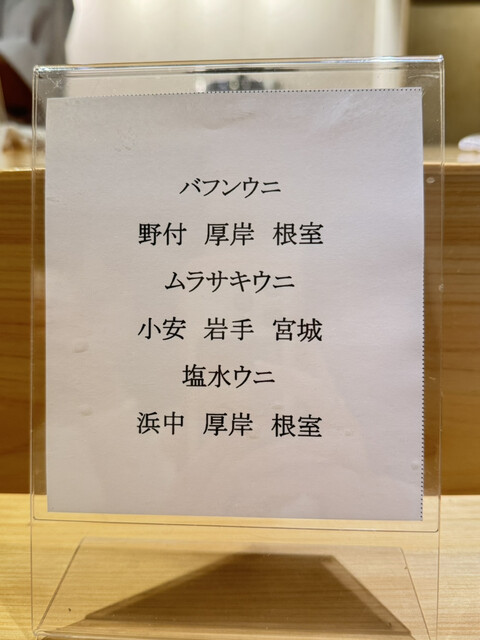 バフンウニ
野付 厚岸 根室
ムラサキウニ
小安 岩手 宮城
塩水ウニ
浜中 厚岸 根室